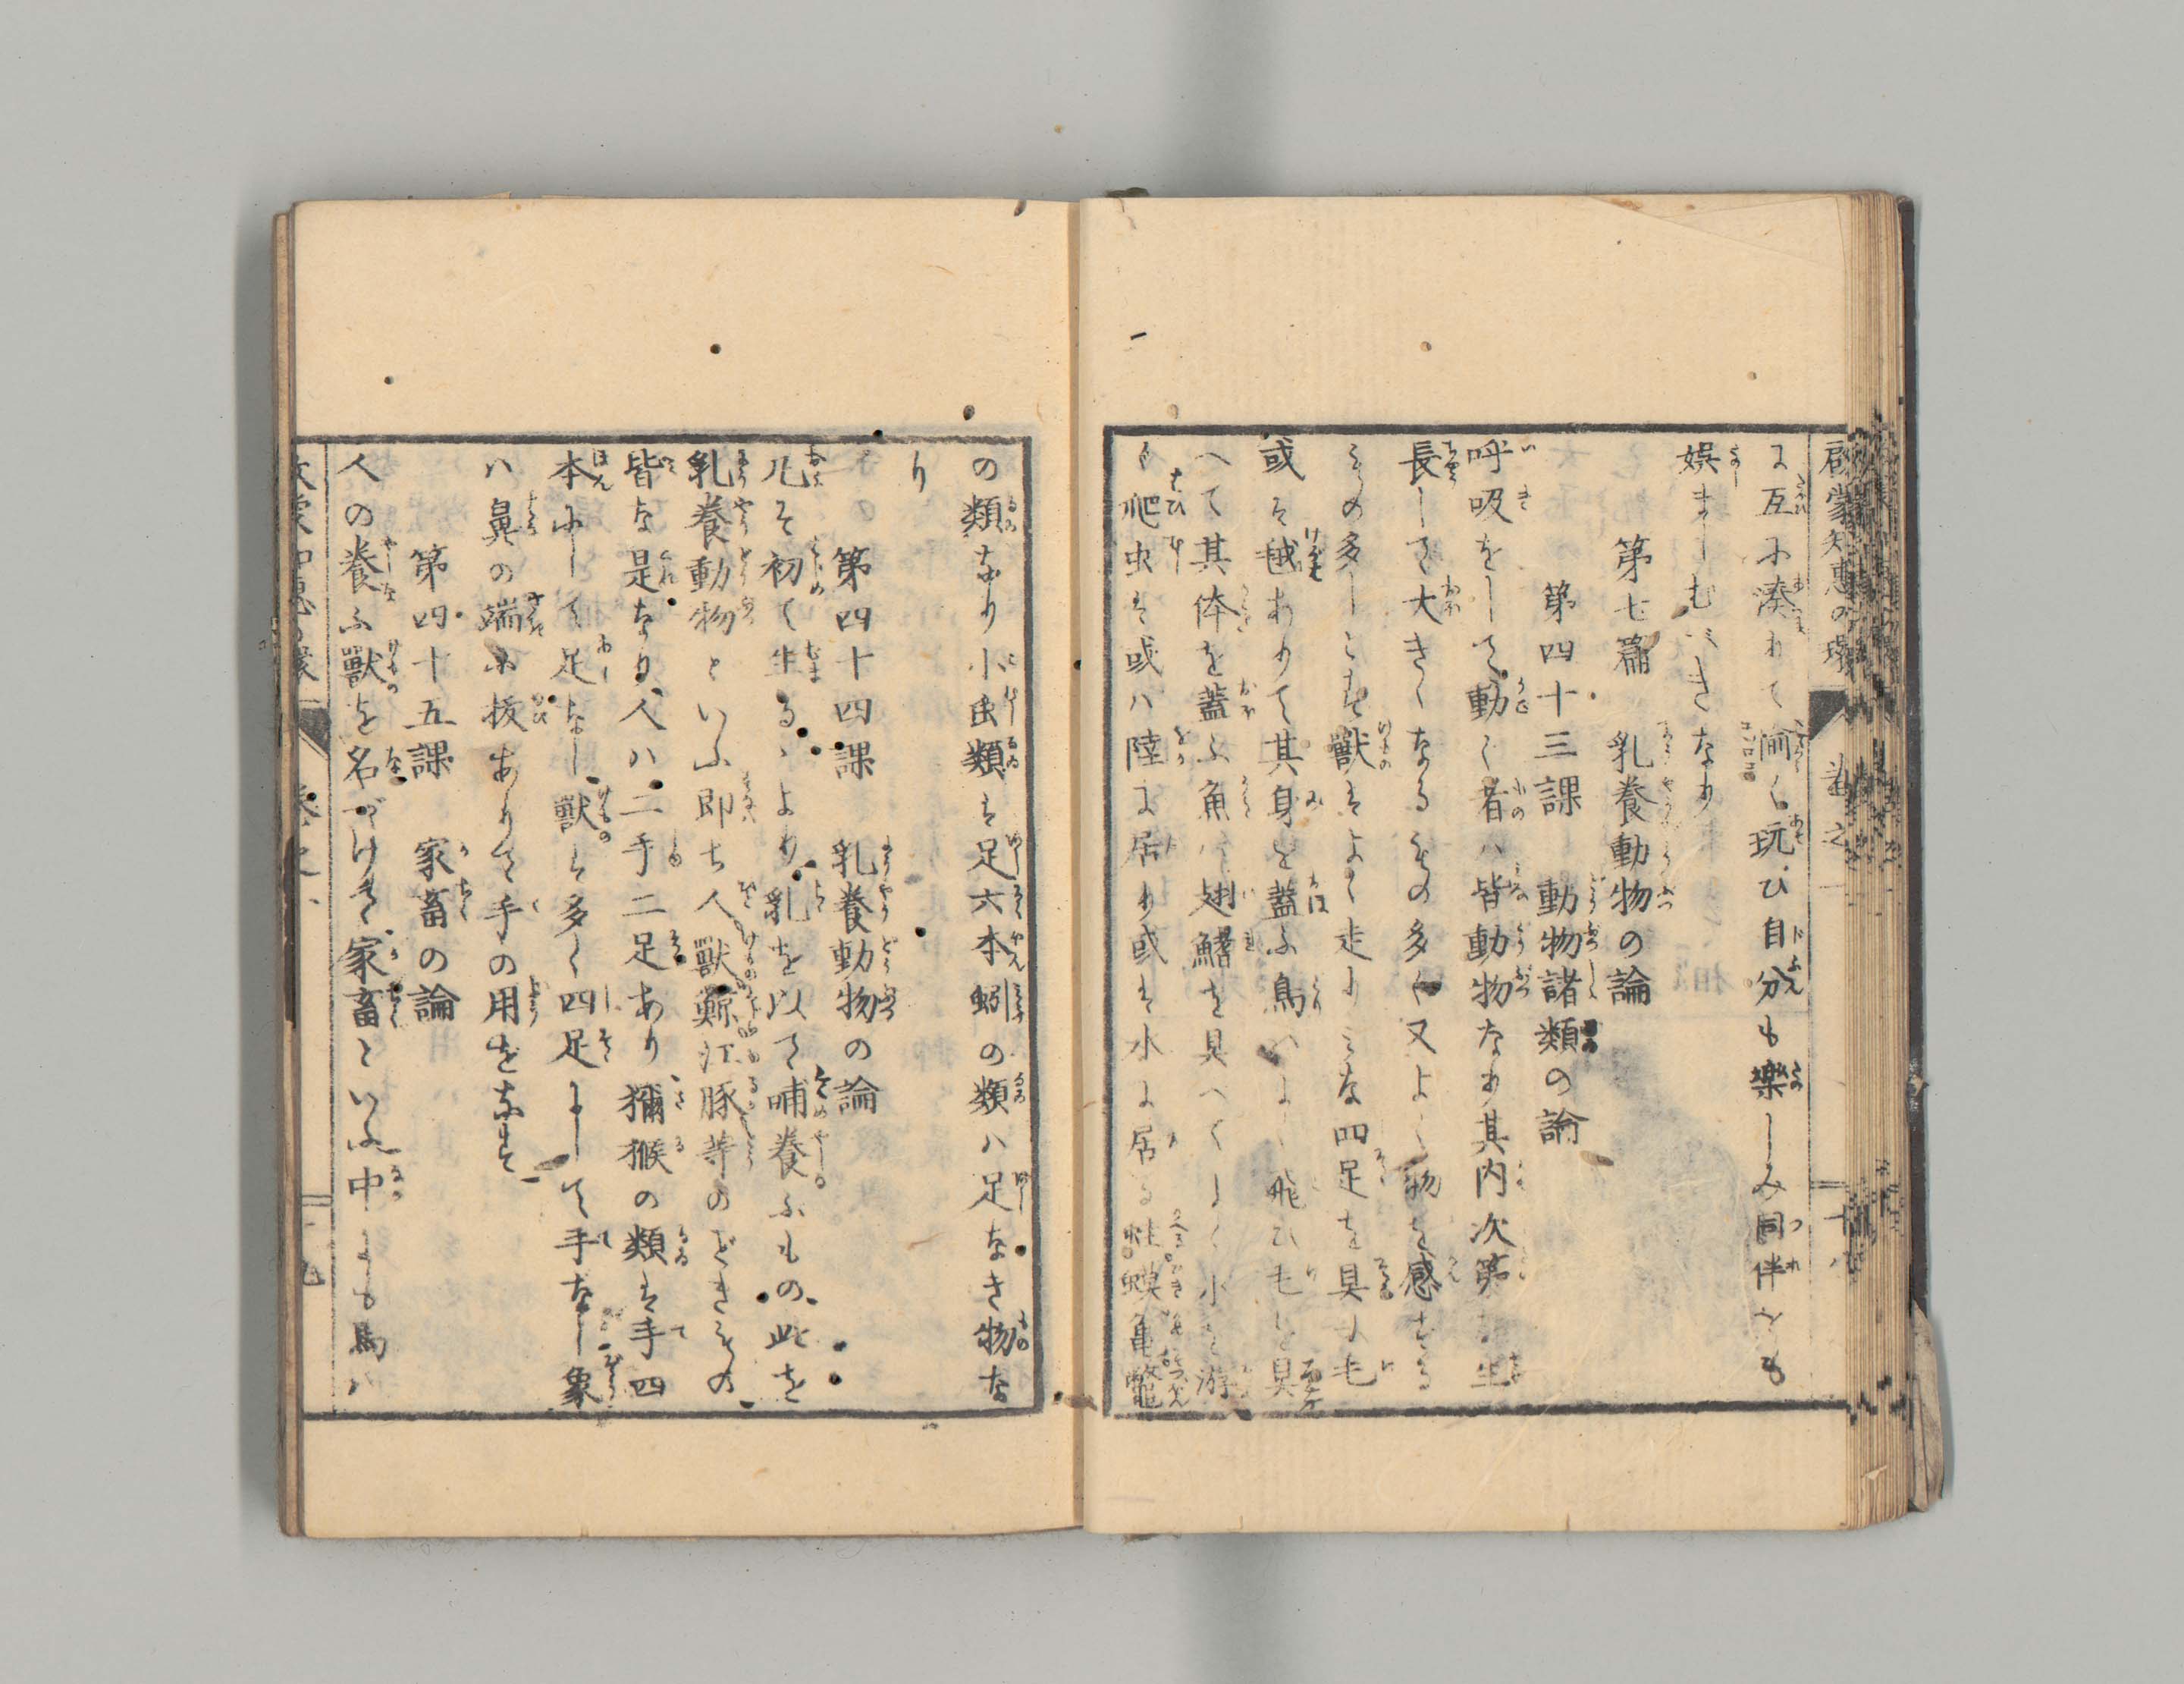 啓蒙知恵の環
に互に湊れて愉く玩び自分も樂しみ同伴をも
娯ましむべきなり
第七篇　乳養動物の論
第四十三課　動物諸類の論
呼吸をして動く者ハ皆動物なり其内次第に生
長して大きくなるもの多く又よく物を感ずる
もの多しこは獣はよく走りみな四足を具へ毛
或は毧ありて其身を蓋ふ鳥ハよく飛び毛を具
へて其体を蓋ふ魚ハ翅鰭を具へてよく水を游
く爬虫は或ハ陸に居り或は水に居る蛙蟆亀鼈
の類なり小虫類は足六本蚓の類ハ足なき物な
り
第四十四課　乳養動物の論
凡そ初て生るゝより乳を以て哺養ふもの此を
乳養動物といふ即ち人獣鯨江豚等のごときもの
皆な是なり人ハ二手二足あり獼猴の類は手四
本にして足なし獣は多く四足にして手なし象
ハ鼻の端に抜ありて手の用をなす
第四十五課　家畜の論
人の養ふ獣を名づけて家畜といふ中にも馬ハ